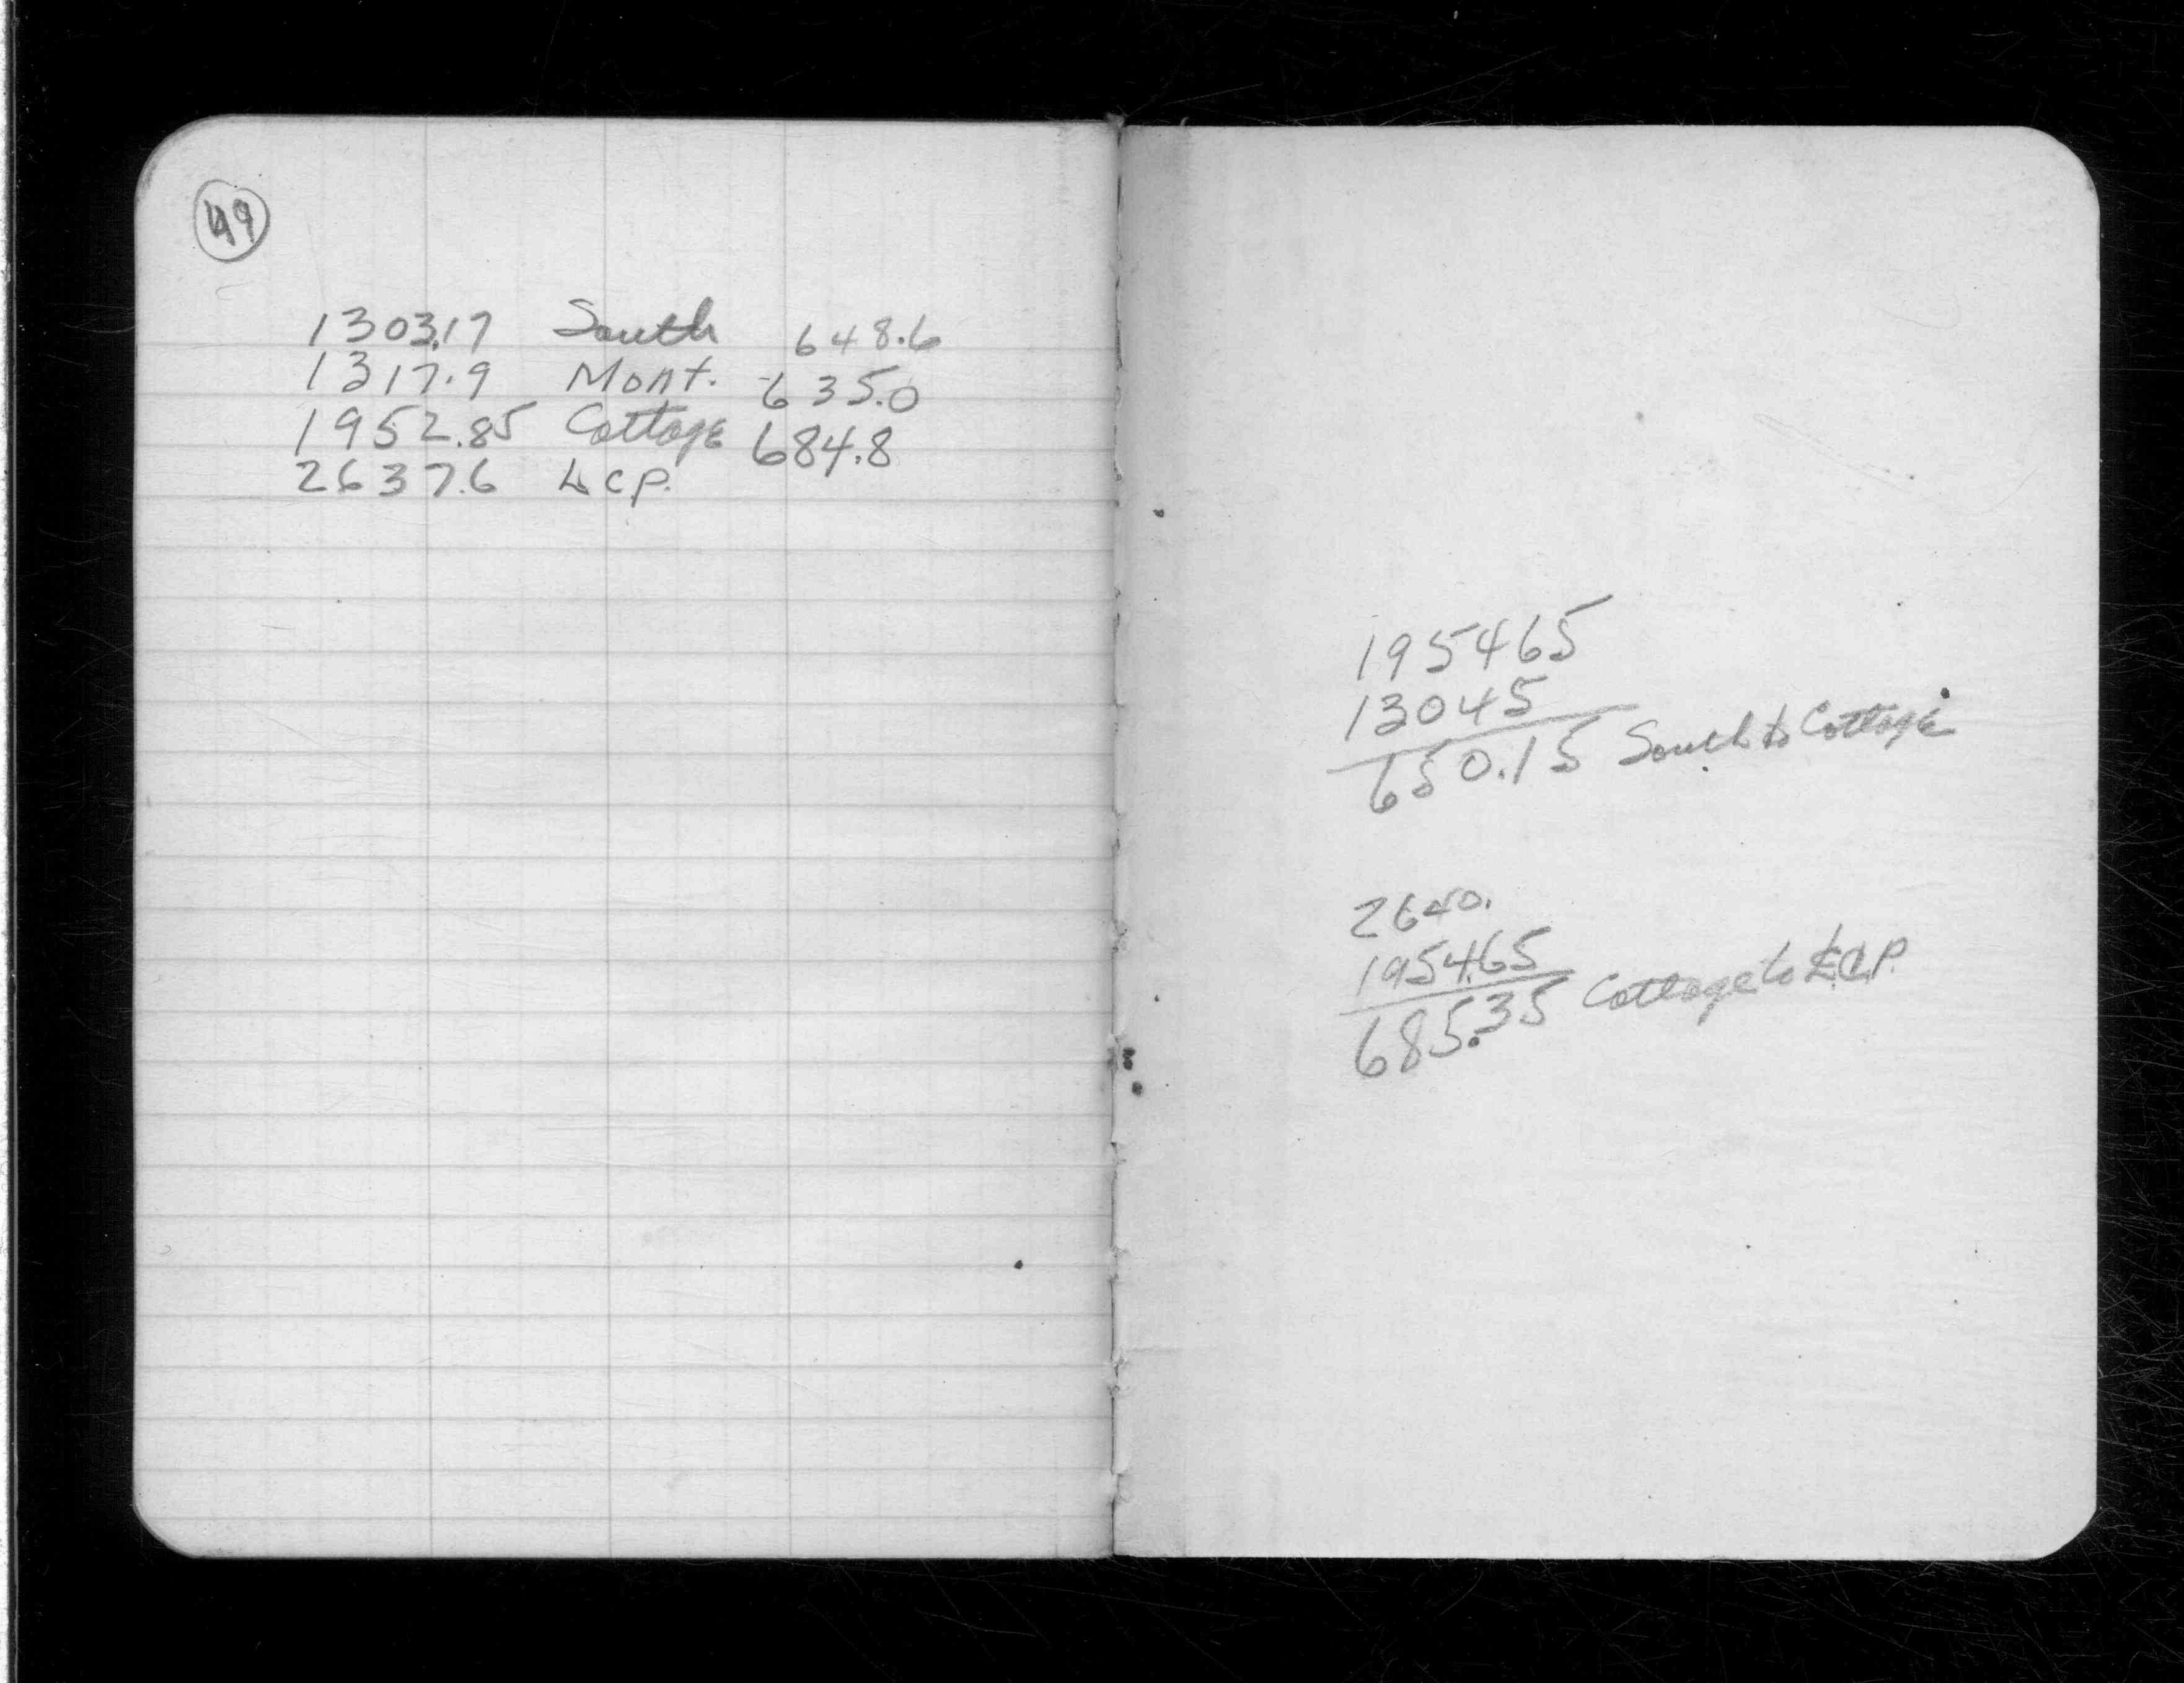 49
1303.17 South 648.6
1317.9 Mont. 635.0
1952.85 Cottage 684.8
2637.6 L.C.P.
195465
13045
650.15 South to Cottage
2640.
1954.65
685.35 Cottage to L.C.P.